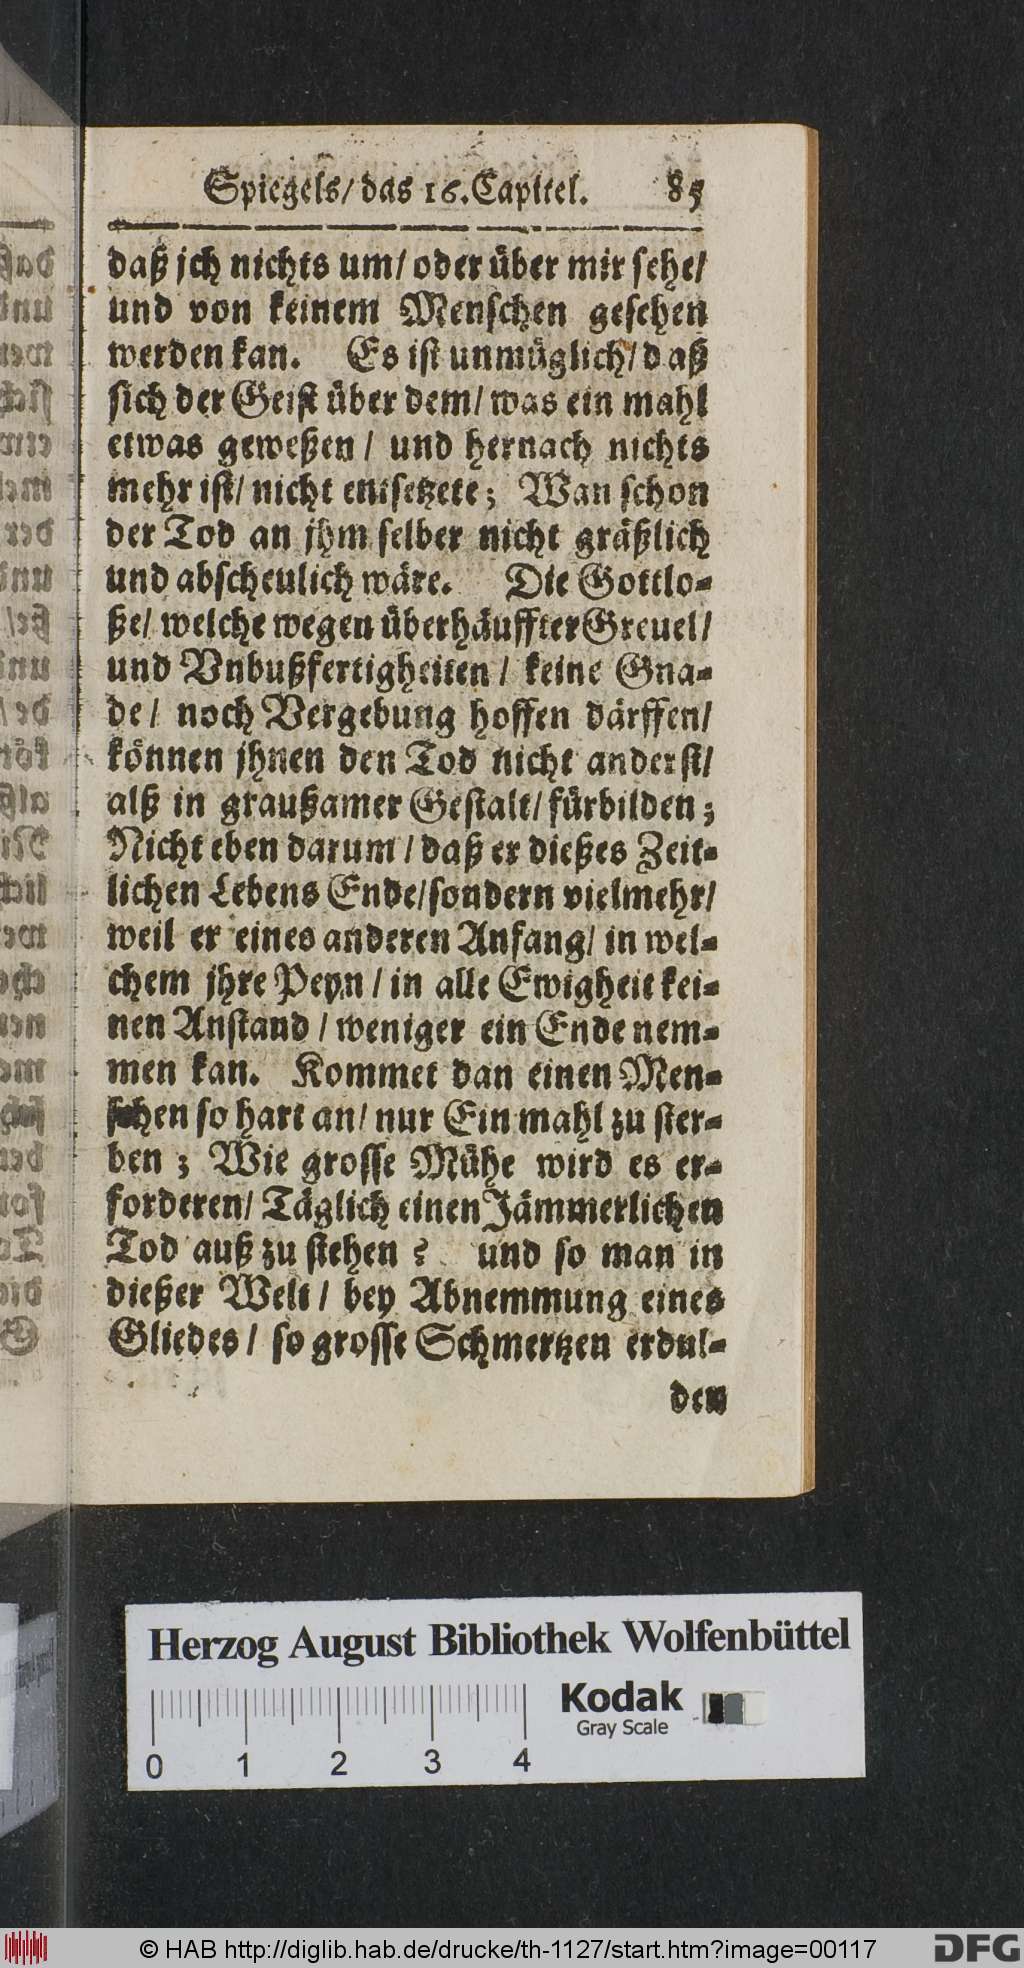 Spiegels/ das 16. Capitel. 85
daß jch nichts um/ oder über mir sehe/
und von keinem Menschen gesehen
werden kan. Es ist unmüglich/ daß
sich der Geist über dem/ was ein mahl
etwas geweßen/ und hernach nichts
mehr ist/ nicht entsetzete; Wan schon
der Tod an jhm selber nicht gräßlich
und abscheulich wäre. Die Gottlo-
ße/ welche wegen überhäuffter Greuel/
und Vnbußfertigheiten/ keine Gna-
de/ noch Vergebung hoffen därffen/
können jhnen den Tod nicht anderst/
alß in graußamer Gestalt/ fürbilden;
Nicht eben darum/ daß er dießes Zeit-
lichen Lebens Ende/ sondern vielmehr/
weil er eines anderen Anfang/ in wel-
chem jhre Peyn/ in alle Ewigheit kei-
nen Anstand/ weniger ein Ende nem-
men kan. Kommet dan einen Men-
schen so hart an/ nur Ein mahl zu ster-
ben; Wie grosse Mühe wird es er-
forderen/ Täglich einen Jämmerlichen
Tod auß zu stehen? und so man in
dießer Welt/ bey Abnemmung eines
Gliedes/ so grosse Schmertzen erdul-
den
Herzog August Bibliothek Wolfenbüttel
Kodak
Gray Scale
0 1 2 3 4
© HAB http://diglib.hab.de/drucke/th-1127/start.htm?image=00117
DFG